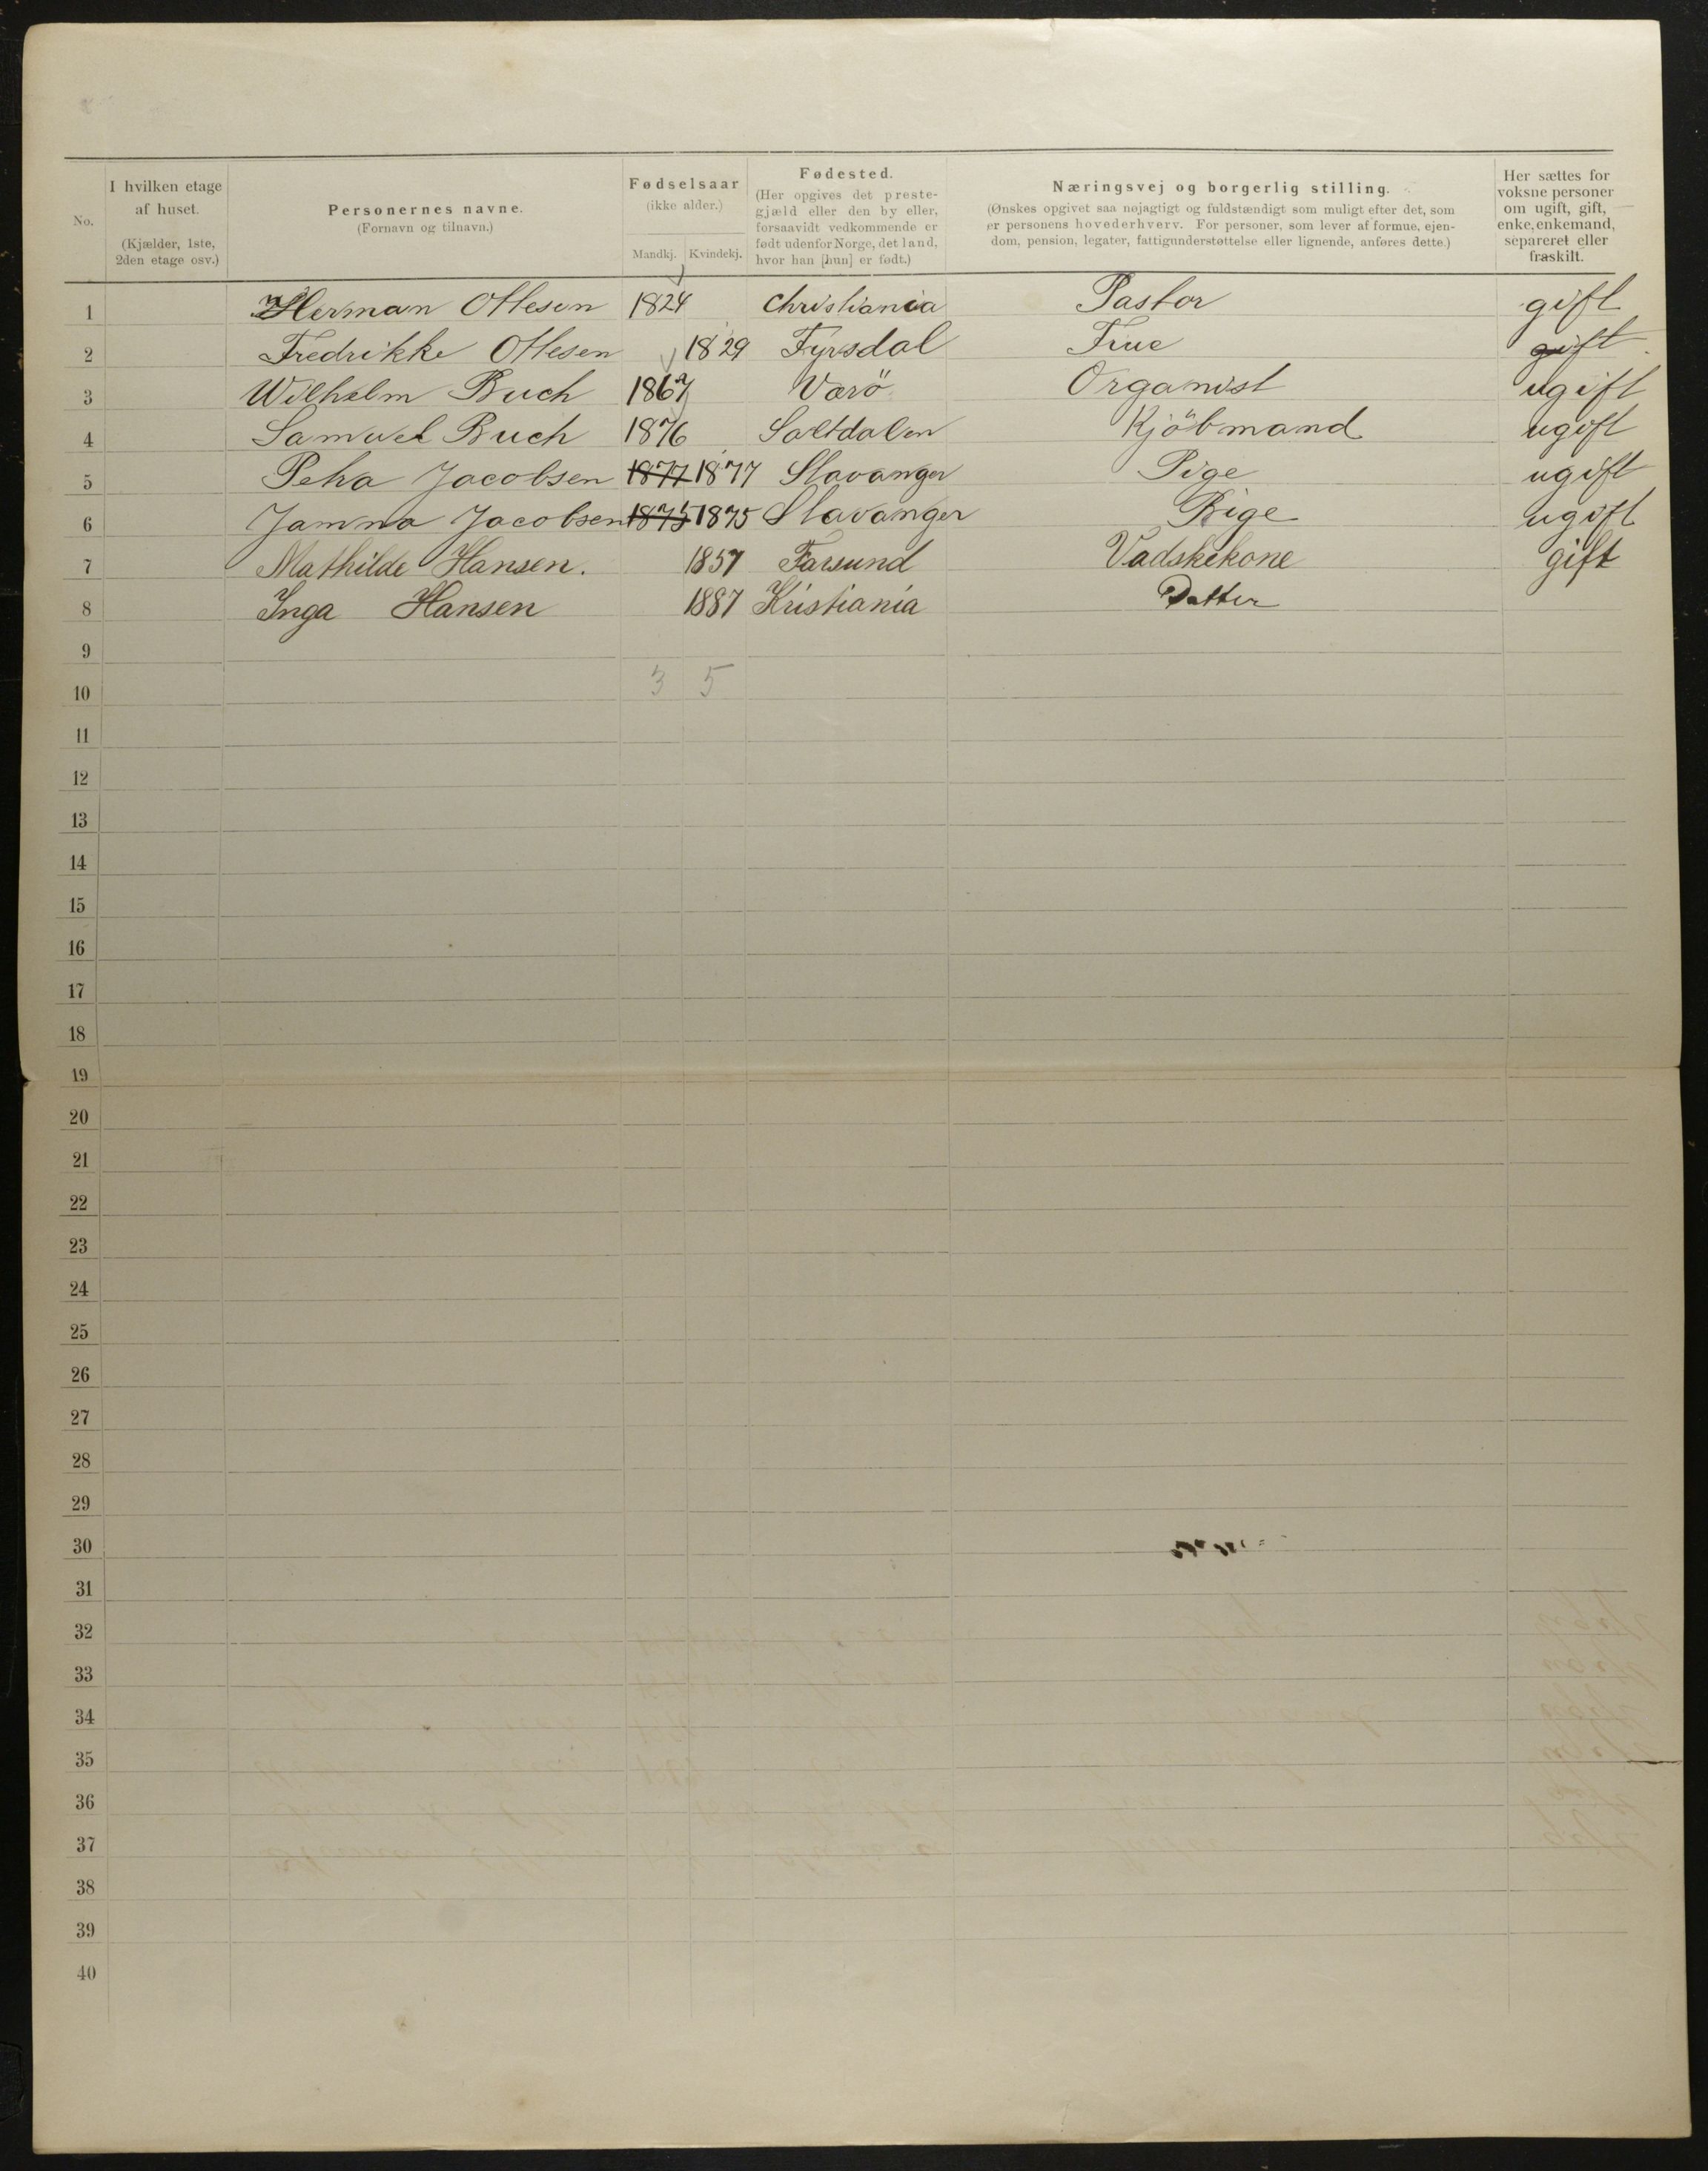 No.
I hvilken etage af huset. (Kjælder, 1ste, 2den etage osv.)
Personernes navne. (Fornavn og tilnavn.)
Fødselsaar (ikke alder.)
Mandkj. Kvindekj.
Fødested. (Her opgives det prestegjæld eller den by eller, forsaavidt vedkommende er født udenfor Norge, det land, hvor han [hun] er født.)
Næringsvej og borgerlig stilling. (Ønskes opgivet saa nøjagtigt og fuldstændigt som muligt efter det, som er personens hovederhverv. For personer, som lever af formue, ejendom, pension, legater, fattigunderstøttelse eller lignende, anføres dette.)
Her sættes for voksne personer om ugift, gift, enke, enkemand, separeret eller fraskilt.
1 Herman Ottesen 1824 Christiania Pastor gift
2 Fredrikke Ottesen 1829 Fyrsdal Frue gift
3 Wilhelm Buch 1867 Værö Organist ugift
4 Samuel Buch 1876 Saltdalen Kjöbmand ugift
5 Petra Jacobsen 1877 1877 Stavanger Pige ugift
6 Janna Jacobsen 1875 1875 Stavanger Pige ugift
7 Mathilde Hansen. 1857 Farsund Vadskekone gift
8 Inga Hansen 1887 Kristiania Datter
9
10 3 5
11
12
13
14
15
16
17
18
19
20
21
22
23
24
25
26
27
28
29
30
31
32
33
34
35
36
37
38
39
40